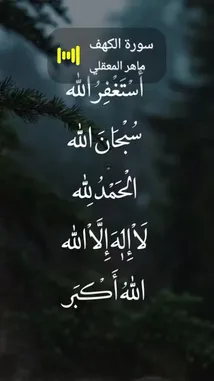 سورة الكهف
ماهر المعقلي
أَسْتَغْفِرُ الله
سُبْحَانَ الله
الْحَمْدُ لِلَّه
لَا إِلَهَ إِلَّا الله
اللهُ أَكْبَر